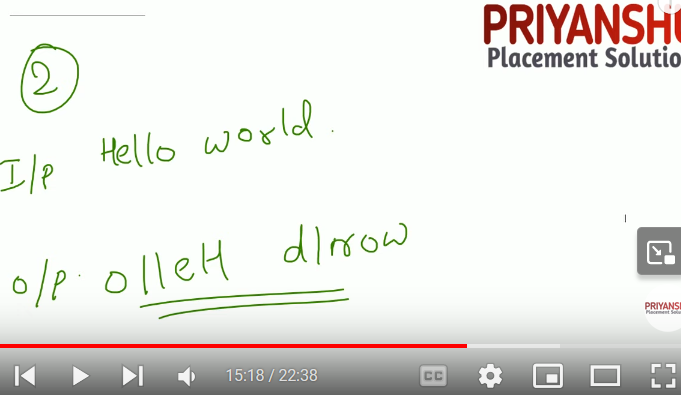 PRIYANSHU
Placement Solutio
2
I/p Hello world.
o/p. olleH dlrow
PRIYANSH
Placement Solu
15:18 / 22:38
CC